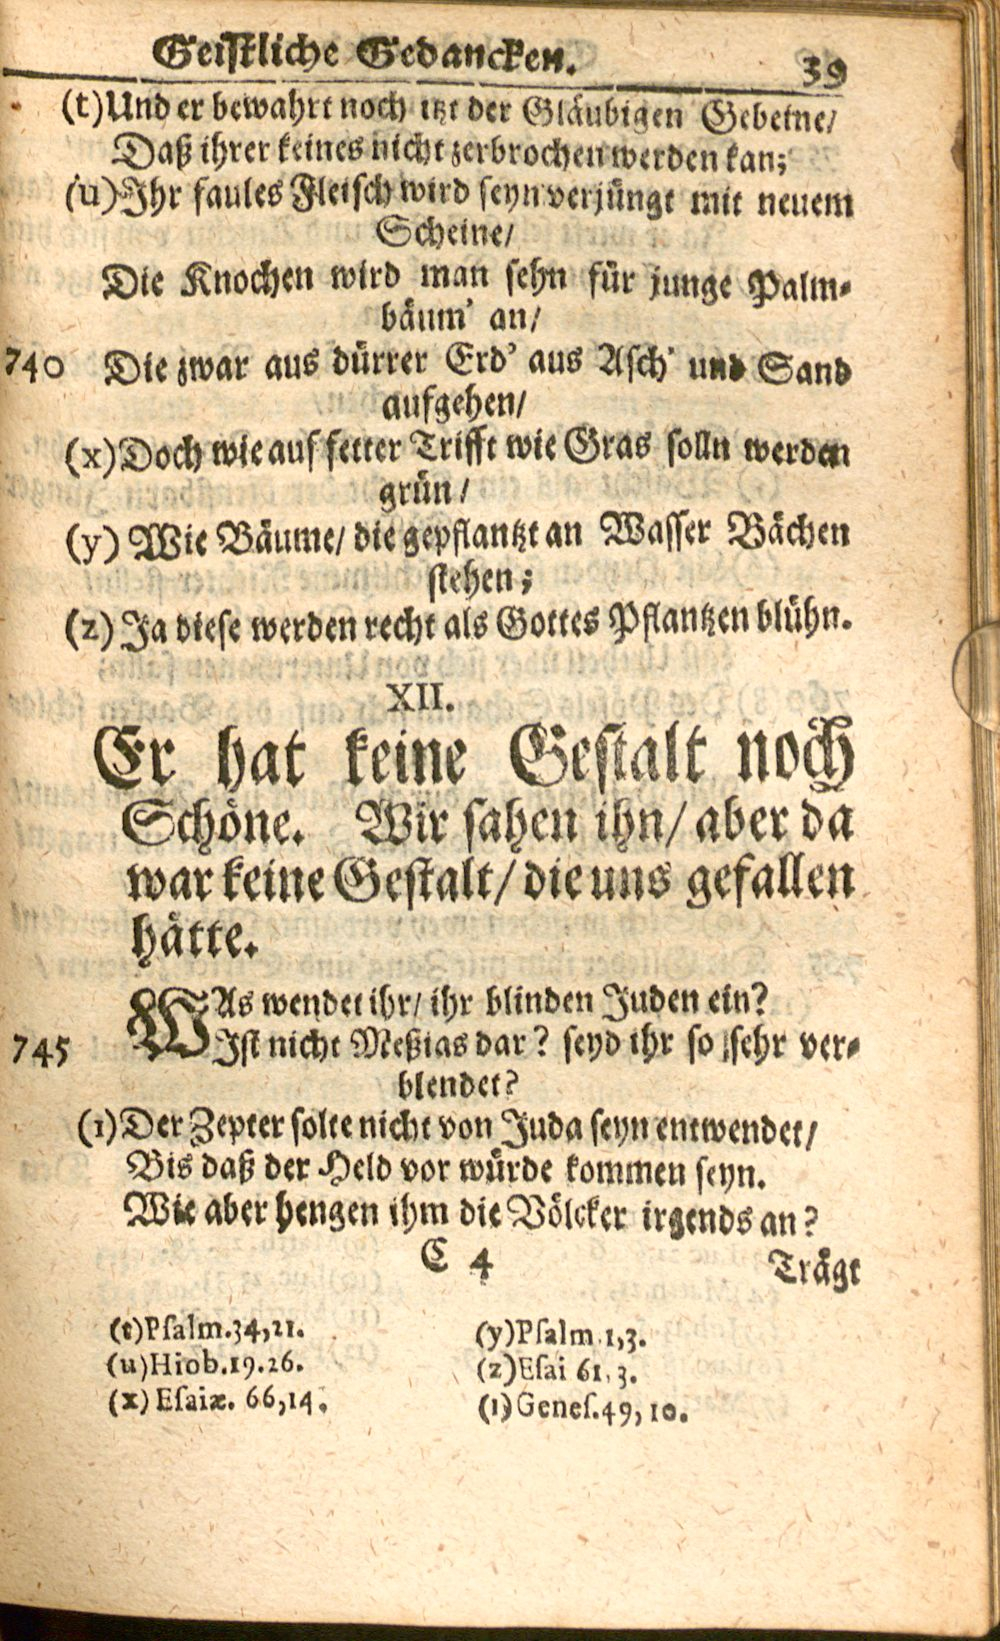 Geistliche Gedancken. 39
(t) Und er bewahrt noch itzt der Gläubigen Gebeine/
Daß ihrer keines nicht zerbrochen werden kan;
(u) Ihr faules Fleisch wird seyn verjüngt mit neuem
Scheine/
Die Knochen wird man sehn für junge Palm-
bäum' an/
740 Die zwar aus dürrer Erd' aus Asch' und Sand
aufgehen/
(x) Doch wie auf fetter Trifft wie Gras solln werden
grün/
(y) Wie Bäume/ die gepflantzt an Wasser Bächen
stehen;
(z) Ja diese werden recht als Gottes Pflantzen blühn.
XII.
Er hat keine Gestalt noch
Schöne. Wir sahen ihn/ aber da
war keine Gestalt/ die uns gefallen
hätte.
WAs wendet ihr/ ihr blinden Juden ein?
745 Ist nicht Meßias dar? seyd ihr so sehr ver-
blendet?
(1) Der Zepter solte nicht von Juda seyn entwendet/
Bis daß der Held vor würde kommen seyn.
Wie aber hengen ihm die Völcker irgends an?
C 4 Trägt
(t) Psalm. 34, 21.
(u) Hiob. 19. 26.
(x) Esaiæ. 66, 14.
(y) Psalm. 1, 3.
(z) Esai 61, 3.
(1) Genes. 49, 10.